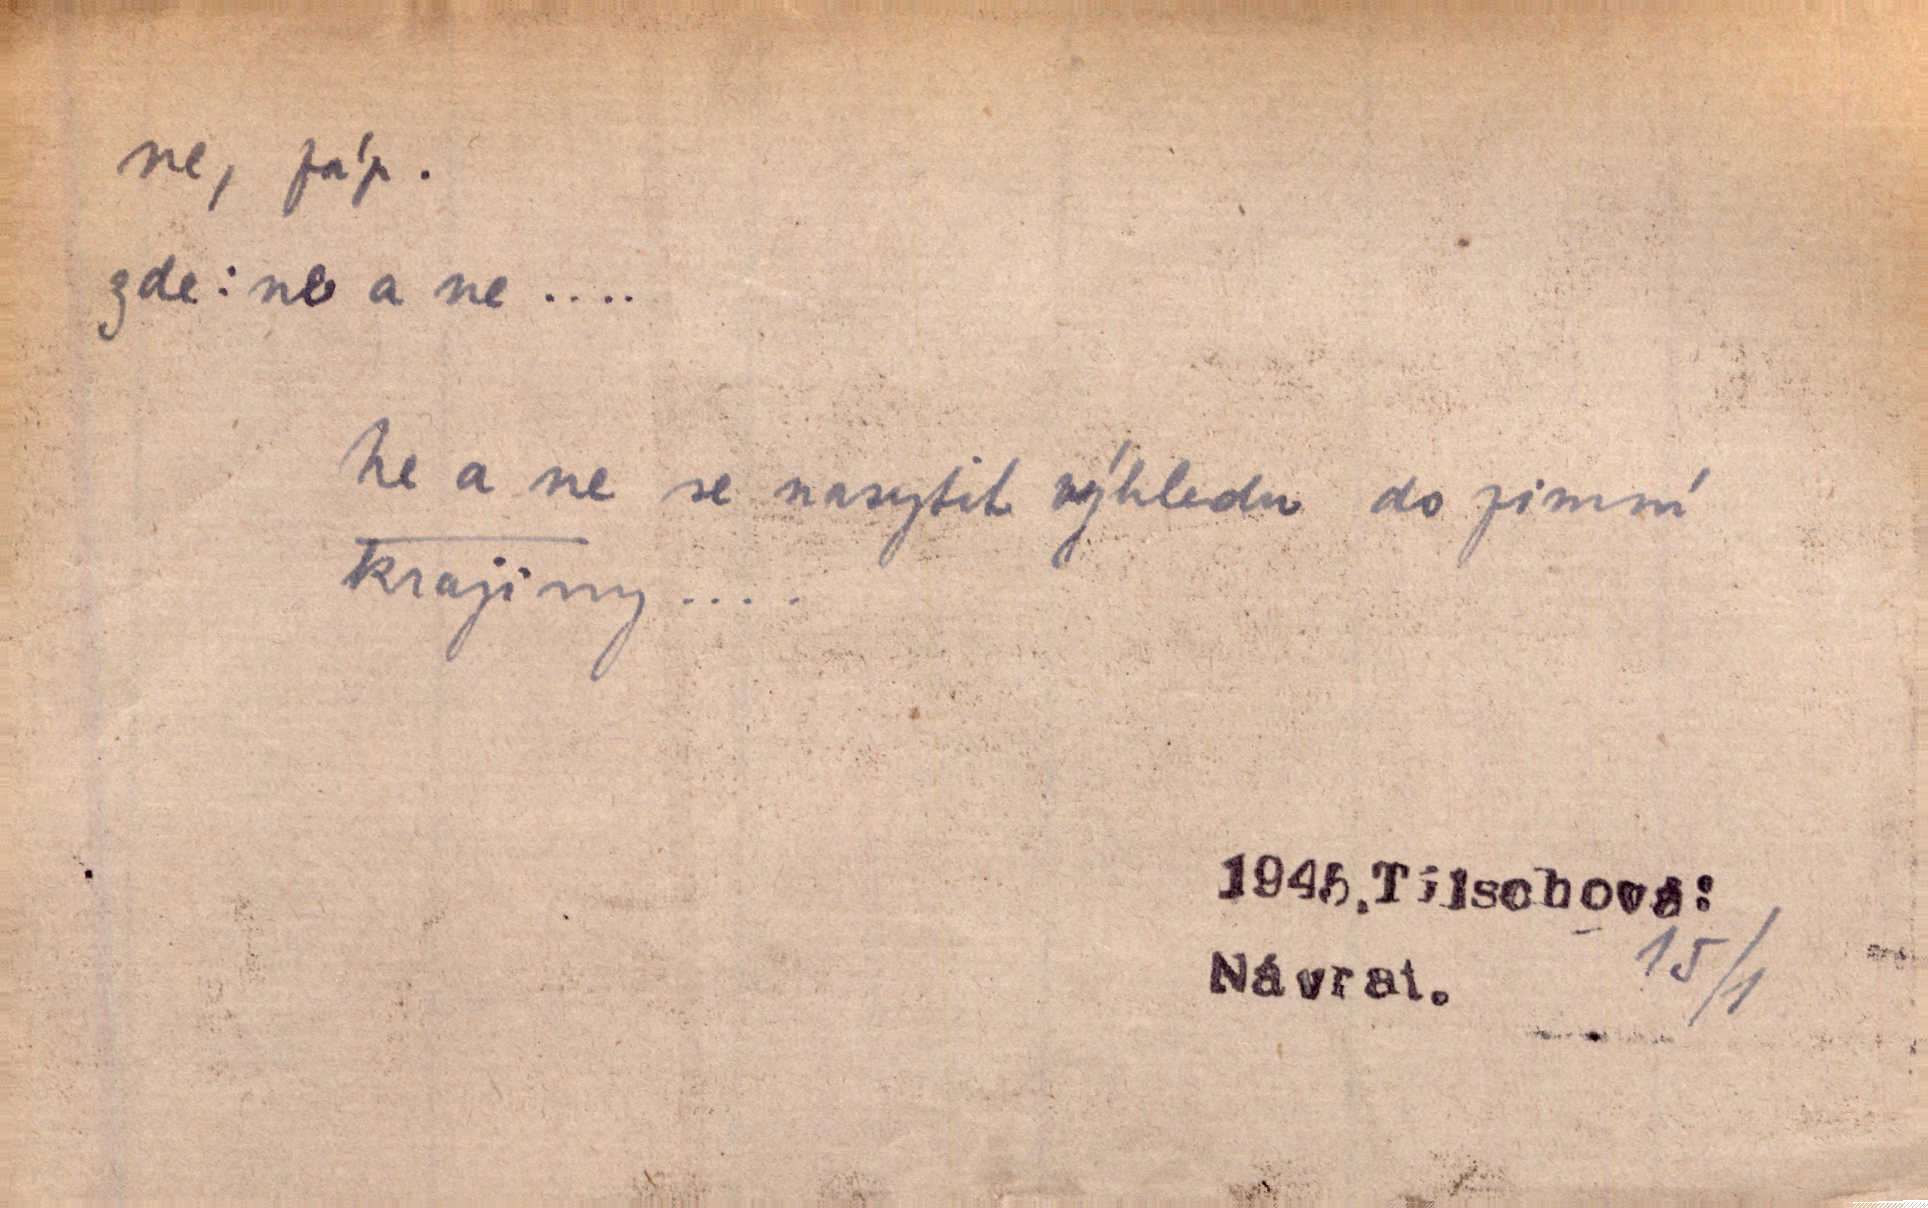 ne, záp.
zde: ne a ne ....
Ne a ne se nasytit výhledu do zimní
krajiny ....
1945.Tilschová:
Návrat.
15/1